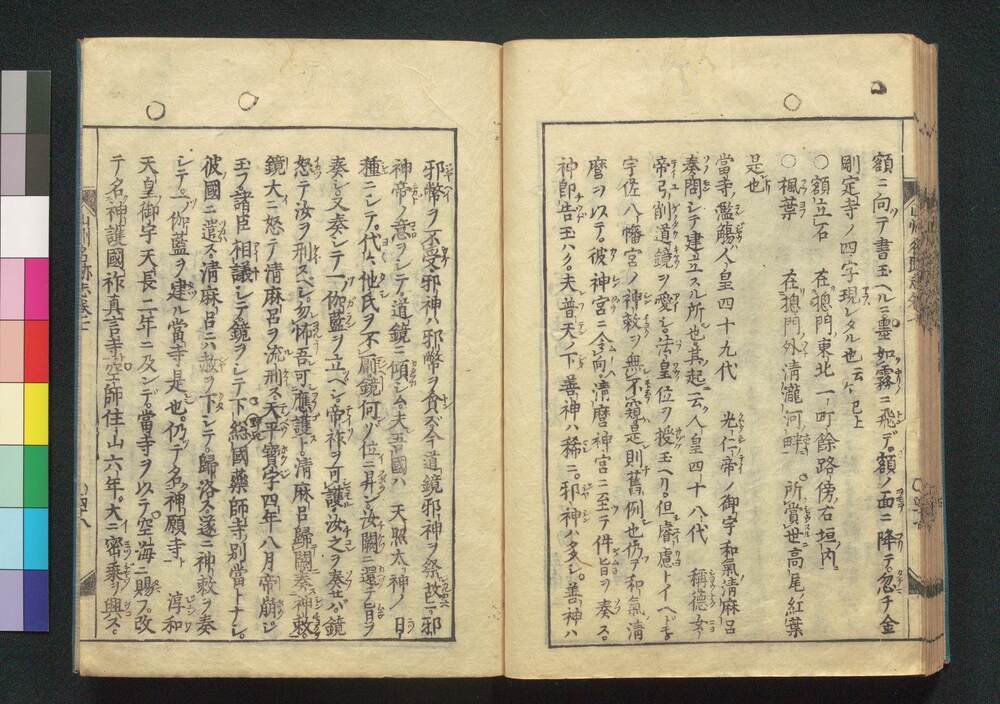 額ニ向テ書玉ヘルニ墨如霧ニ飛デ。額ノ面ニ降テ。忽チ金
剛定寺ノ四字現レタル也云々已上
○額立石 在樓門ノ東北一町餘路傍右垣内。
○楓葉 在樓門外清瀧河畔。所賞世高尾ノ紅葉
是也
當寺ノ濫觴ハ人皇四十九代 光仁帝ノ御宇和氣清麻呂
奏聞シテ建立スル所也。其起ニ云人皇四十八代 稱德女
帝弓削道鏡ヲ愛シ法皇位ヲ授玉ヘリ。但睿慮トイヘドモ
宇佐八幡宮ノ神敕ヲ無不窺是則舊例也仍テ和氣清
麿ヲ以テ。彼神宮ニ令向清麿神宮ニ至テ件旨ヲ奏ス。
神即告玉ハク。夫普天ノ下善神ハ稀ニ。邪神ハ多シ。善神ハ
邪幣ヲ不受。邪神ハ邪幣ヲ貪ズ今道鏡邪神ヲ祭故ニ。邪
神帝ノ意ヲシテ道鏡ニ傾シム。夫吾國ハ 天照太神ノ日
種ニシテ。代々他氏ヲ不厠鏡何ゾ位ニ昇ン汝闕ニ還テ旨ヲ
奏シ又奏シテ一伽藍ヲ立ベシ。帝祚ヲ可護汝之ヲ奏セバ。鏡
怒テ汝ヲ刑スベシ。勿怖吾可應護ト。清麻呂歸闕奏神敕
鏡大ニ怒テ清麻呂ヲ流刑ス。天平寶字四年八月帝崩ジ
玉フ諸臣相議シテ鏡ヲシテ下ノ総國藥師寺ノ別當トナシ。
彼國ニ遣ス。清麻呂ニハ赦ヲ下シテ。歸洛ス遂ニ神敕ヲ奏
シテ。一伽藍ヲ建ル當寺是也。仍テ名神願寺ト 淳和
天皇ノ御宇天長二年ニ及ンデ。當寺ヲ以テ空海ニ賜フ。改
テ名神護國祚真言寺ト空師住山六年。大ニ密乘ヲ興ス。